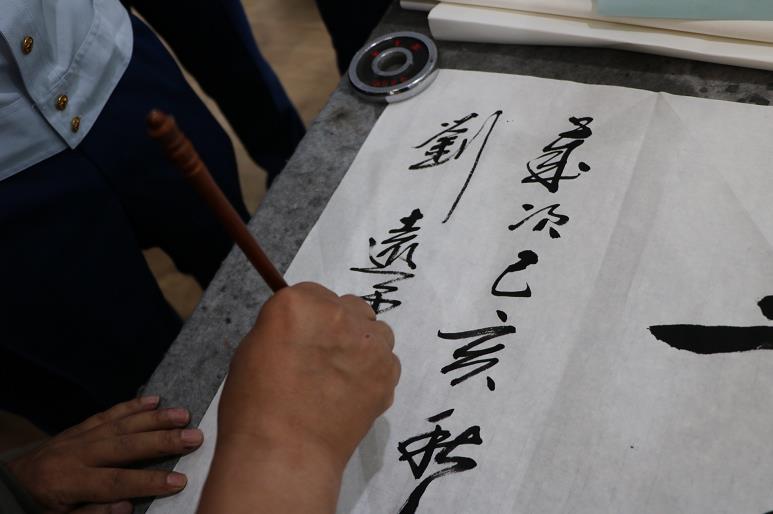 歲次己亥秋
劉遠